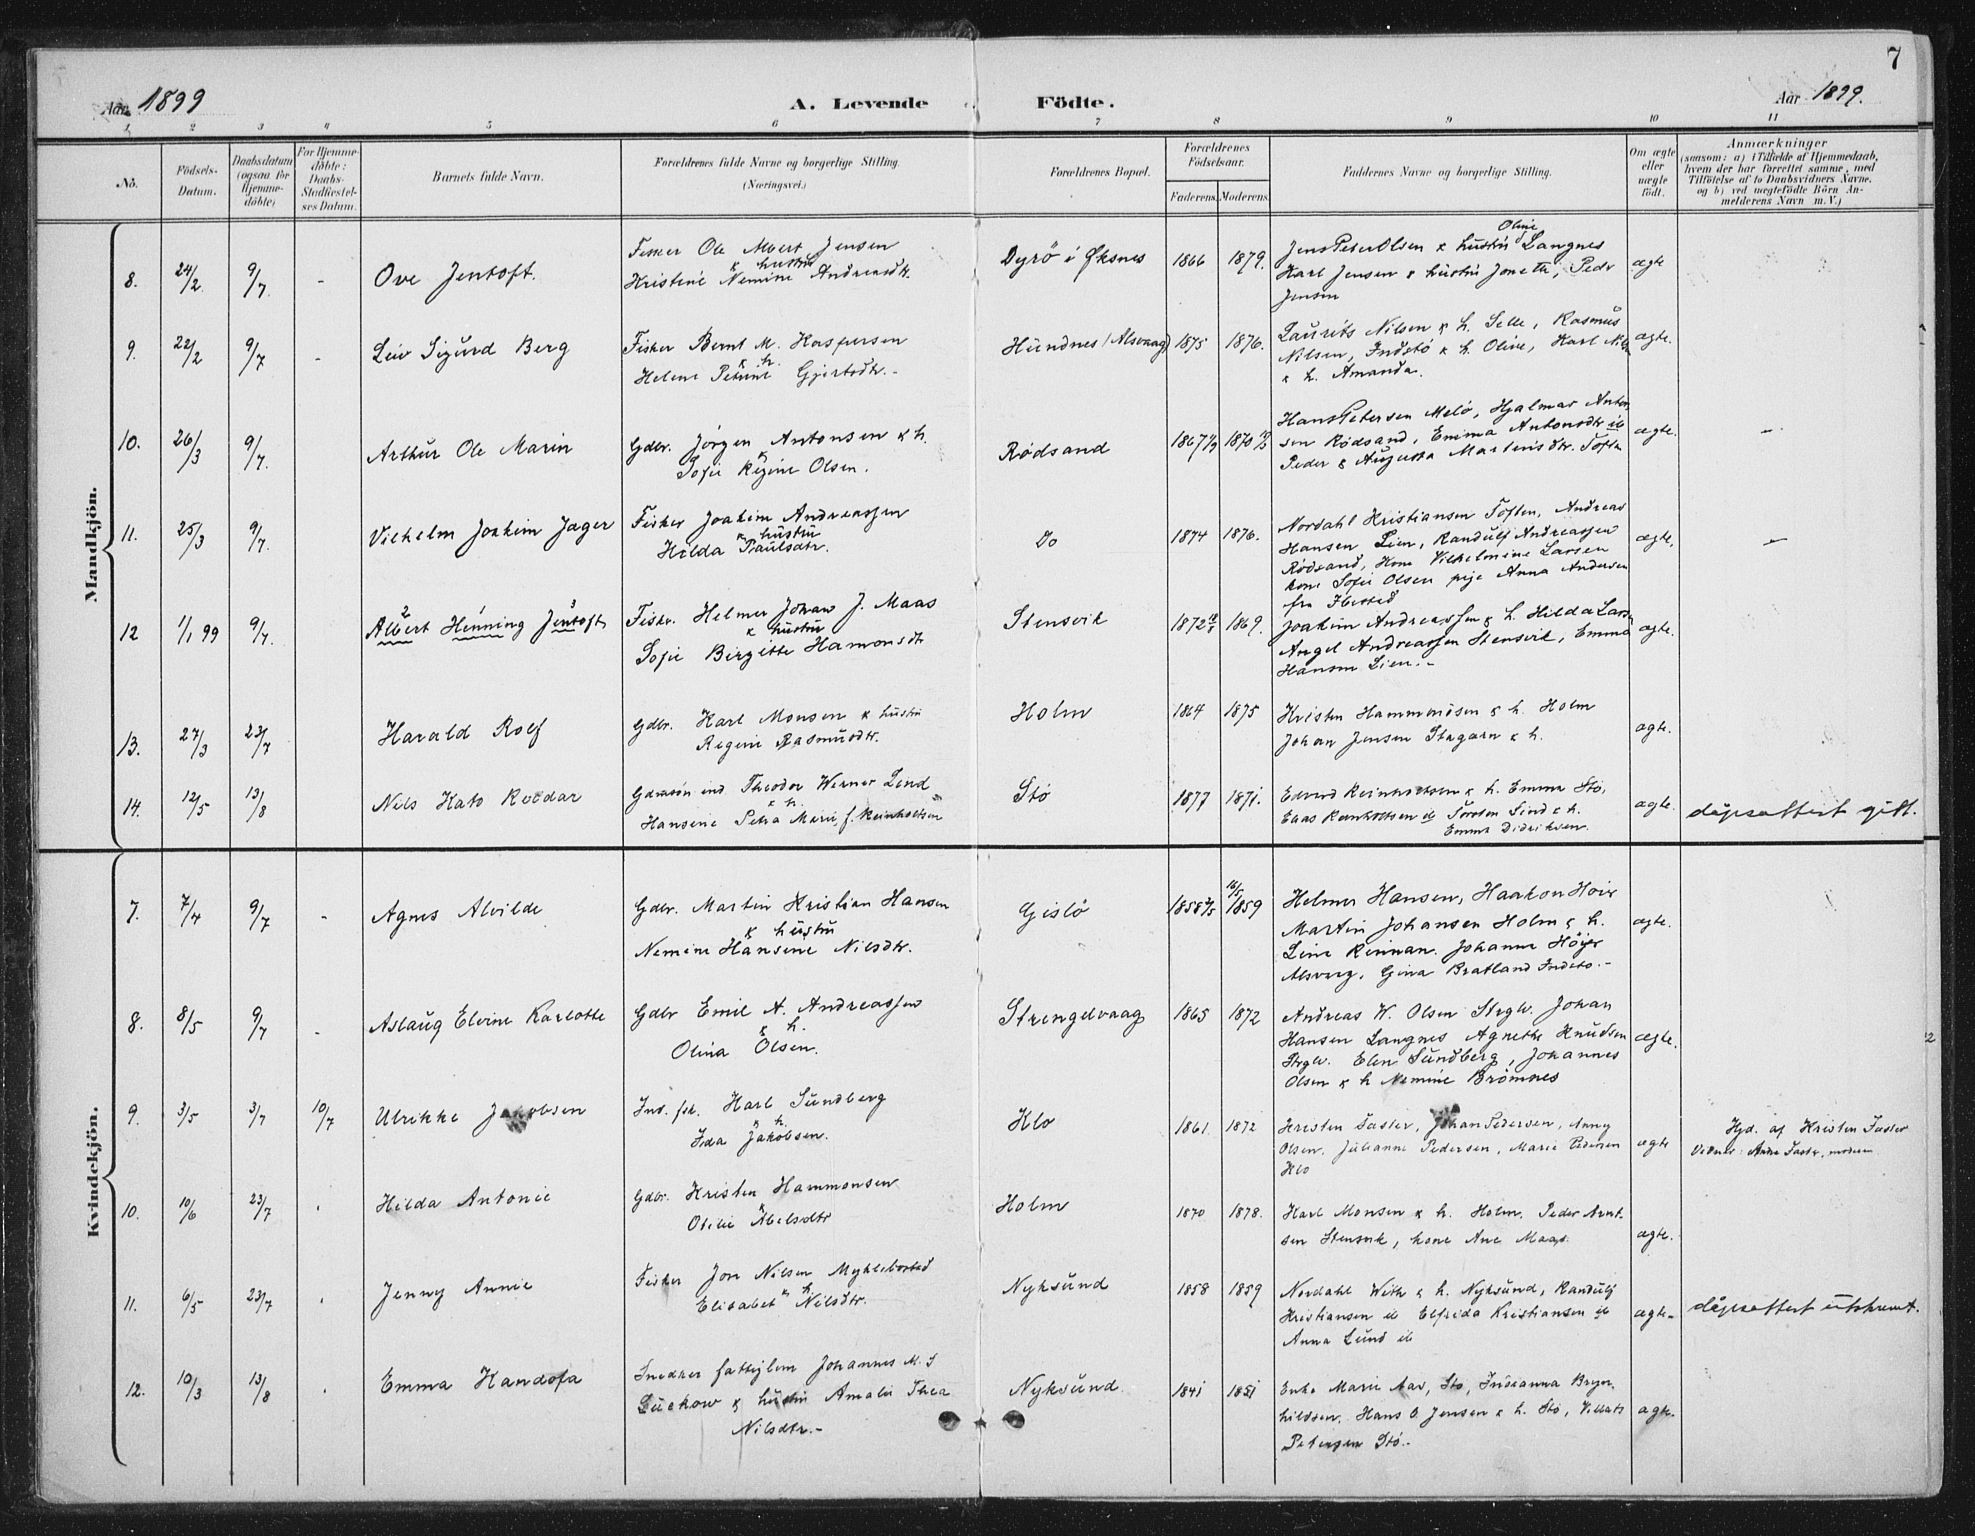 7
Aar 1899
A. Levende Födte.
Aar 1899.
1 2 3 4 5 6 7 8 9 10 11
No.
Födsels-
Datum.
Daabsdatum
(ogsaa for
Hjemme-
döbte)
For Hjemme-
döbte:
Daabs-
Stadfæstel-
ses Datum.
Barnets fulde Navn.
Forældrenes fulde Navne og borgerlige Stilling.
(Næringsvei.)
Forældrenes Bopæl.
Forældrenes
Födselsaar.
Faderens. Moderens.
Faddernes Navne og borgerlige Stilling.
Om ægte
eller
uægte
födt.
Anmærkninger
(saasom: a) i Tilfælde af Hjemmedaab,
hvem der har forrettet samme, med
Tilföielse af to Daabsvidners Navne,
og b) ved uægtefödte Börn An-
melderens Navn m.V.)
Mandkjön.
8. 24/2 9/7 - Ove Jentoft.
Fisker Ole Albert Jensen
& hustru
Kristine Nemine Andreasdtr.
Dyrö i Øksnes 1866 1879.
Oline
Jens Peter Olsen & hustru Langnes
Karl Jensen & hustru Jonette, Peder
Jensen
ægte
9. 22/2 9/7 - Leiv Sigurd Berg
Fisker Bernt M. Kaspersen
& h.
Helene Petrine Gjertsdtr.-
Hundnes (Alsvaag) 1875 1876.
Laurits Nilsen & h. Selle, Rasmus
Nilsen, Indstö & h. Olive, Karl Nilsen
& h. Amanda.
ægte.
10. 26/3 9/7. Arthur Ole Marin
Gdbr. Jörgen Antonsen & h.
Sofie Regine Olsen.
Rødsand 1867 1870
Hans Petersen Melö, Hjalmar Anton-
sen Rødsand, Emma Antonsdtr ib
Peder & Augusta Martinsdtr. Toften
ægte. -
11. 25/3 9/7. Vilhelm Joakim Jager
Fisker Joakim Andreassen
& hustru
Hilda Paulsdtr.
Do 1874 1876.
Nordahl Kristiansen Toften, Andreas
Hansen Lien, Randulf Andreassen
Rödsand, Kone Vilhelmine Larsen
kone Sofie Olsen pige Anna Andersen
fra Ibestad
ægte. -
12 1/1 99 9/7. Albert Henning Jentoft
2 1 3
Fisker. Helmer Johan J. Maas
& hustru
Sofie Birgitte Hamonsdtr
Stensvik 1872 1869.
Joakim Andreassen & h. Hilda Larsen
Angel Andreassen Stensvik, Emma
Hansen Lien.-
ægte.
13. 27/3 23/7 Harald Rolf
Gdbr. Karl Monsen & hustru
Regine Rasmusdtr.
Holm 1864 1875
Kristen Hammonsen & h. Holm
Johan Jensen Stegarn & h.
ægte.
14. 12/5 13/8 Nils Kato Roedar
Gdmsön ind Theodor Werner Lind
& h.
Hansine Petra Marie, f. Reinholtsen
Stö 1877 1871.
Edvard Reinholtsen & h. Emma Stö,
Elias Reinholtsen ib Torsten Lind & h.
Emma Didriksen.
ægte. dåpsattest gitt.
Kvindekjön.
7. 7/4 9/7 - Agnes Alvilde
Gdbr. Martin Kristian Hansen
& hustru
Nemine Hansine Nilsdtr.
Gislö 1858 16/5 1859
Helmer Hansen, Haakon Hoier
Martin Johansen Holm & h.
Line Rinnan. Johanna Höyer
Alsvaag, Gina Bratland Indstö.-
ægte.
8. 8/5 9/7 - Aslaug Elvine Karlotte
Gdbr Emil A. Andreassen
& h.
Olina Olsen.
Strengelvaag 1865 1872
Andreas W. Olsen Strglv. Johan
Hansen Langnes Agnethe Knudsen
Strglv. Elen Sundberg, Johannes
Olsen & h Nemine Brömnes
ægte.
9. 3/5 3/7 10/7 Ulrikke Jakobsen
Ind. fsk. Karl Sundberg
& h.
Ida Jakobsen.
Klo 1861 1872
Kristen Faster, Johan Pedersen, Anny
Olsen. Julianne Pedersen, Marie Pedersen
Klo
ægte
Hjd. af Kristen Faster
Vidner: Anne Faster, moderen
10. 10/6 23/7 Hilda Antonie
Gdbr. Kristen Hammonsen
&
Otilie Abelsdtr
Holm 1870 1878.
Karl Monsen & h. Holm. Peder Arnt-
sen Stensvik, kone Ane Maas.
ægte.
11. 6/5 23/7 Jenny Annie
Fisker Jon Nilsen Myklebostad
& h
Elisabet Nilsdtr.
Nyksund 1858 1859
Nordahl With & h. Nyksund, Randulf
Kristiansen ib Elfrida Kristiansen ib
Anna Lund ib
ægte. dåpsattest utskrevet.
12. 10/3 13/8 Emma Kandofa
Snedker fattiglem Johannes M. S
Lückow & hustru Amalie Thea
Nilsdtr.-
Nyksund. 1841 1851
Enke Marie Aas, Stö, Indianna Bryn-
hildsen, Hans O Jensen & h. Stö,
Petersen Stö.-
ægte.